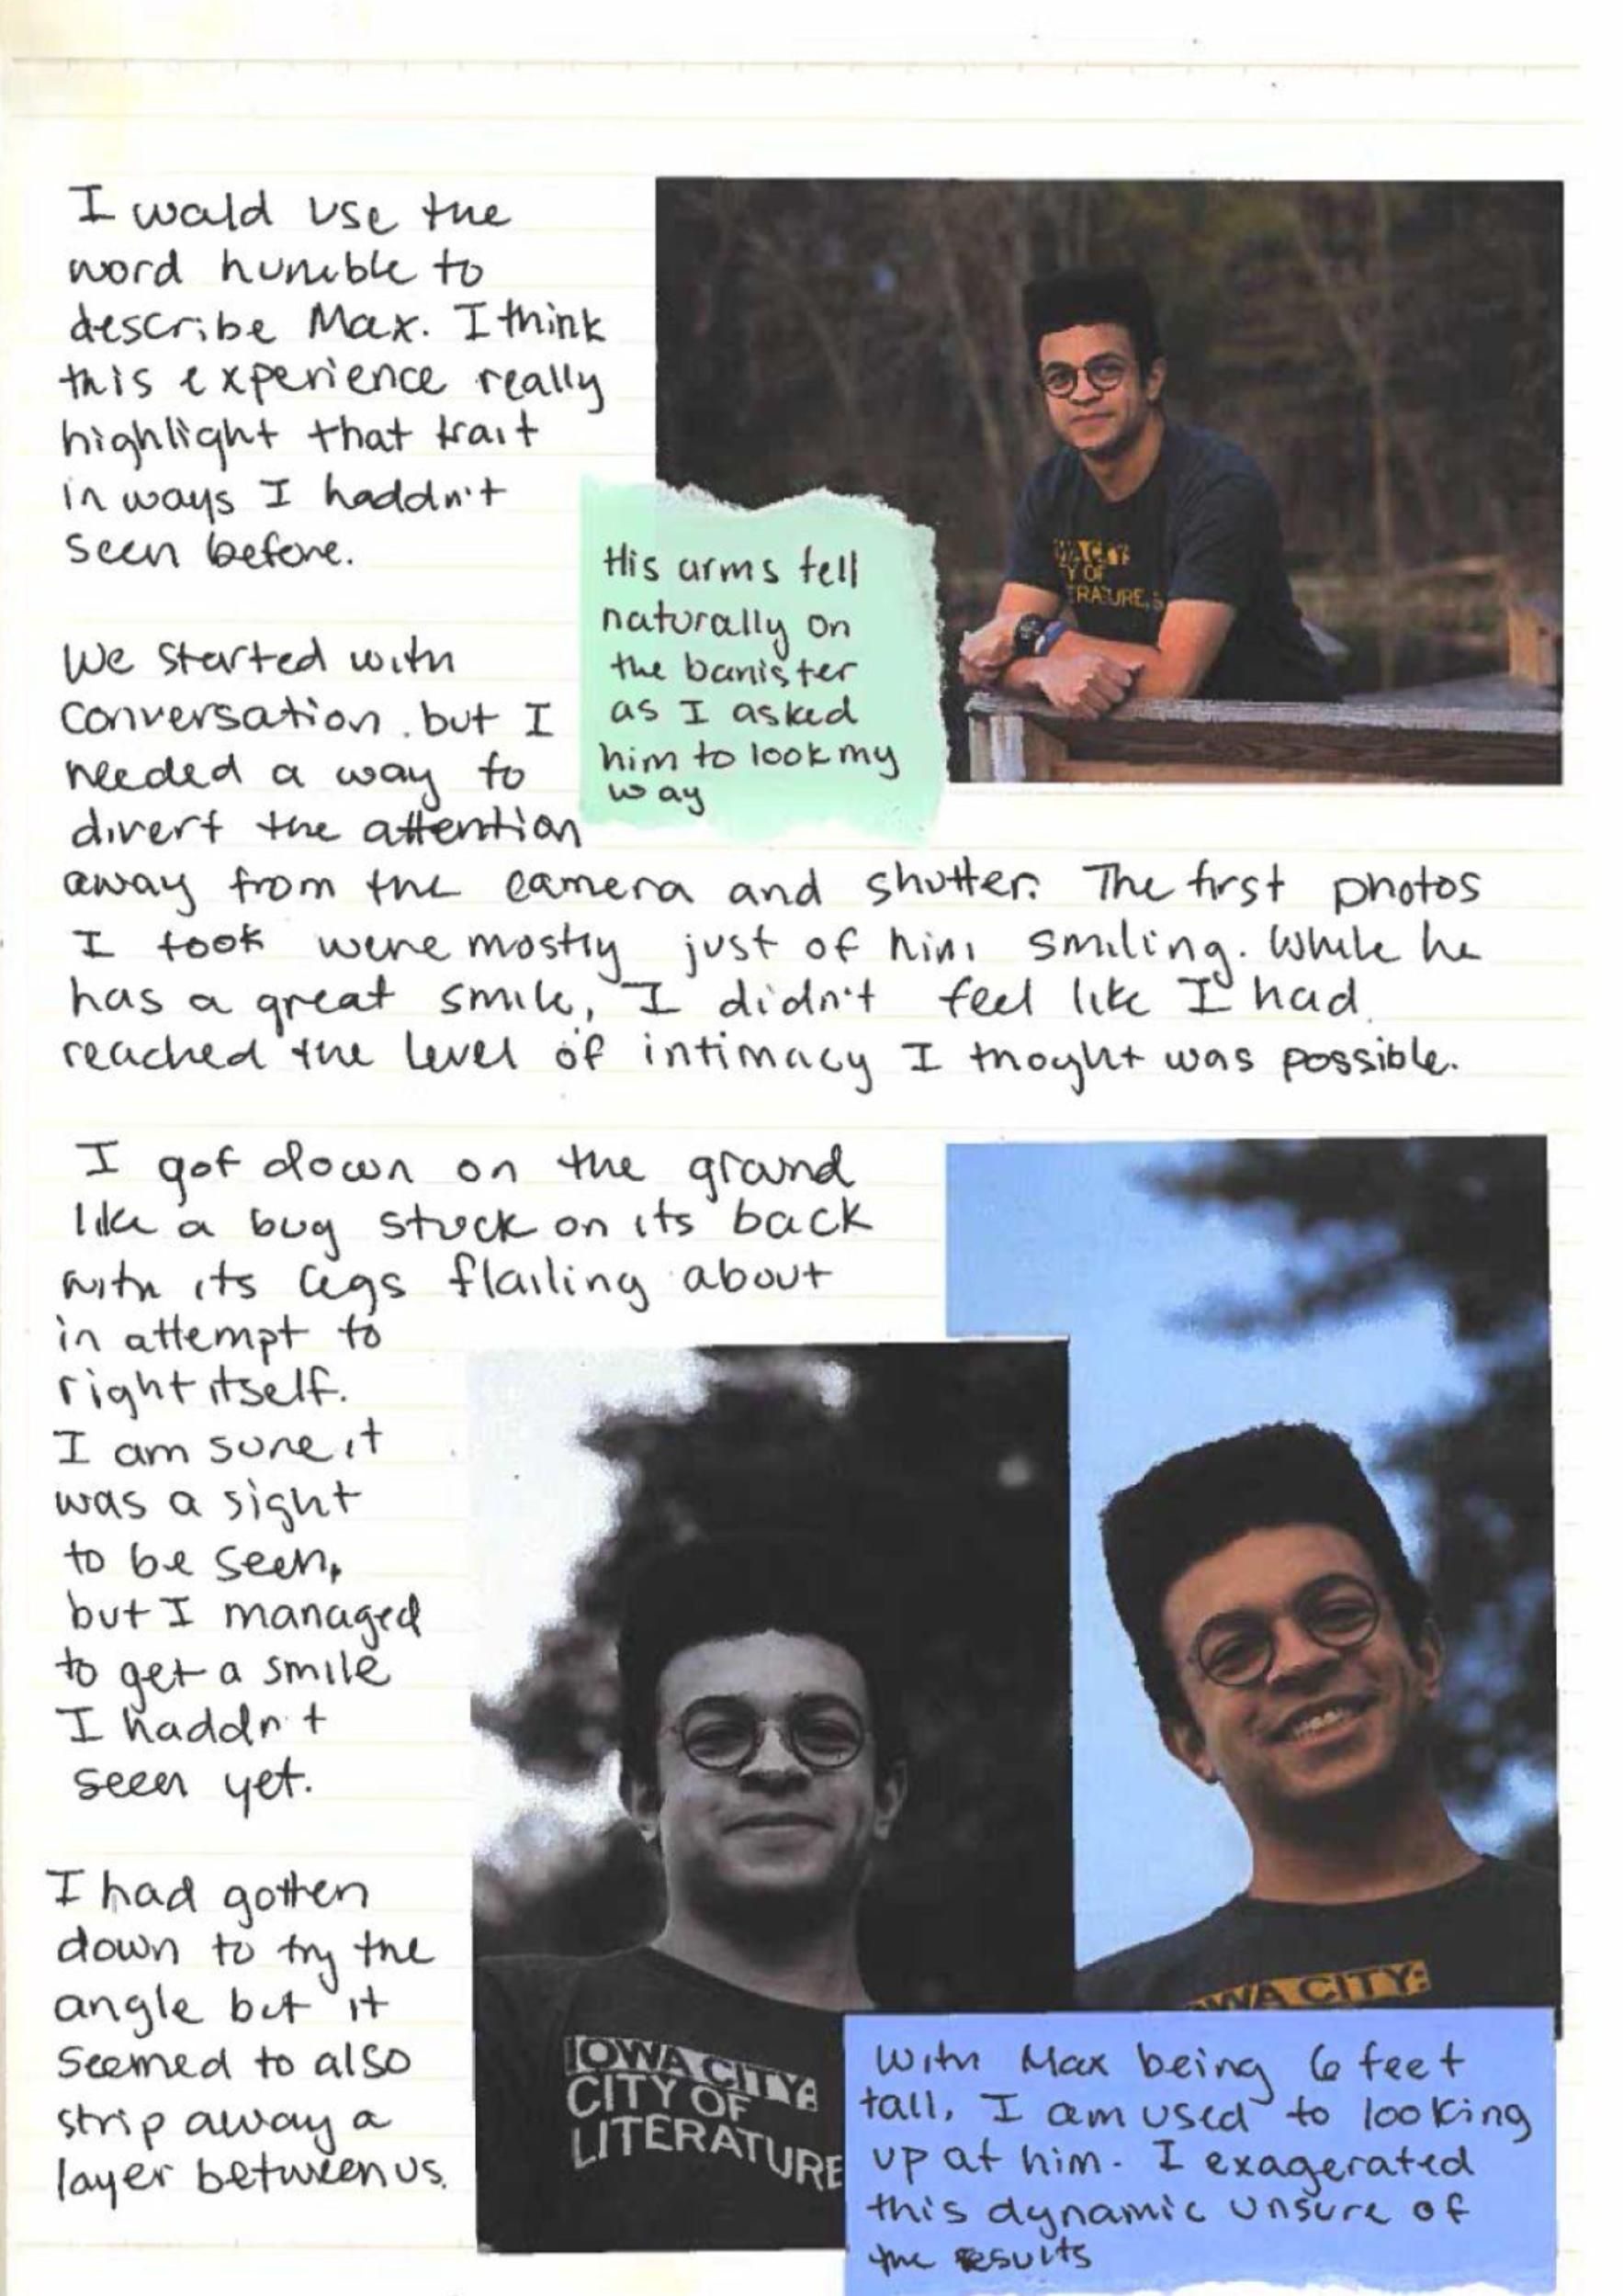 I would use the
word humble to
describe Max. I think
this experience really
highlight that trait
in ways I haddn't
seen before.
His arms fell
naturally on
the banister
as I asked
him to look my
way
WA CITY:
Y OF
ERATURE, S
We started with
conversation, but I
needed a way to
divert the attention
away from the camera and shutter. The first photos
I took were mostly just of him smiling. While he
has a great smile, I didn't feel like I had
reached the level of intimacy I thoght was possible.
I got down on the ground
like a bug stuck on its back
with its legs flailing about
in attempt to
right itself.
I am sure it
was a sight
to be seen,
but I managed
to get a smile
I haddn't
seen yet.
I had gotten
down to try the
angle but it
seemed to also
strip away a
layer between us.
IOWA CITY:
CITY OF
LITERATURE
WA CITY:
With Max being 6 feet
tall, I am used to looking
up at him. I exagerated
this dynamic unsure of
the results